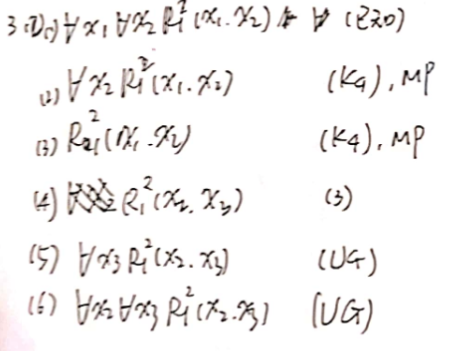 3. (1) ∀x₁ ∀x₂ R₁²(x₁.x₂) (已知)
(2) ∀x₂ R₁²(x₁.x₂) (K4), MP
(3) R₁²(x₁.x₂) (K4), MP
(4) R₁²(x₂.x₃) (3)
(5) ∀x₃ R₁²(x₂.x₃) (UG)
(6) ∀x₂ ∀x₃ R₁²(x₂.x₃) (UG)